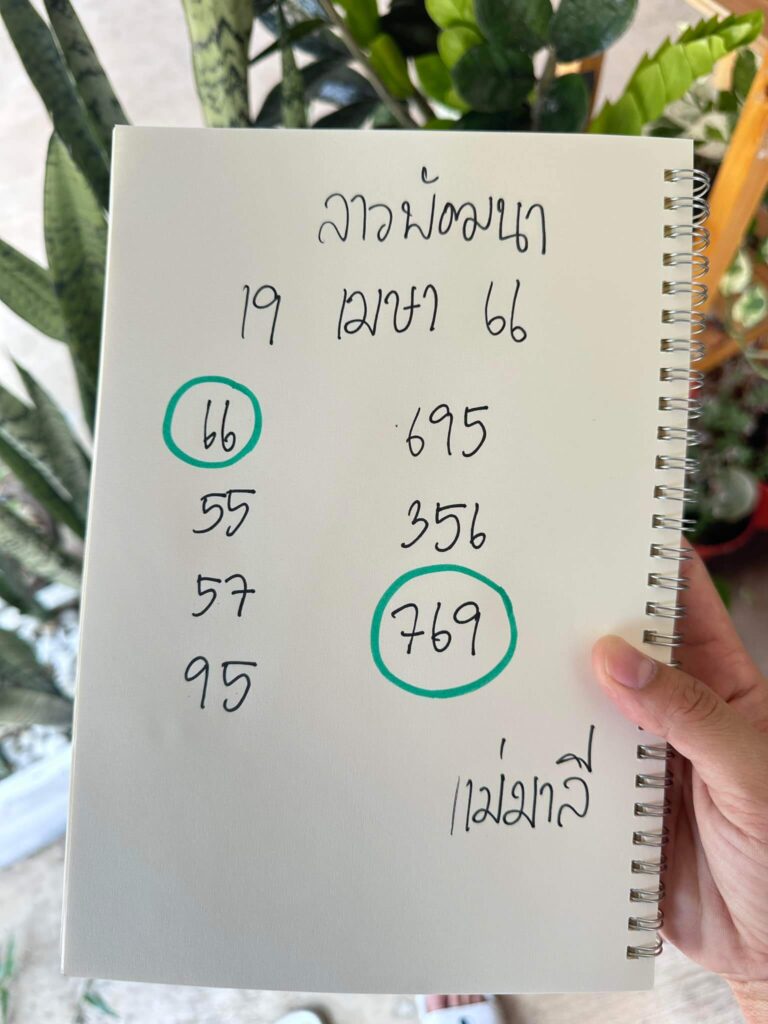 ลาวพัฒนา
19 เมษา 66
66 695
55 356
57 769
95
แม่มาลี